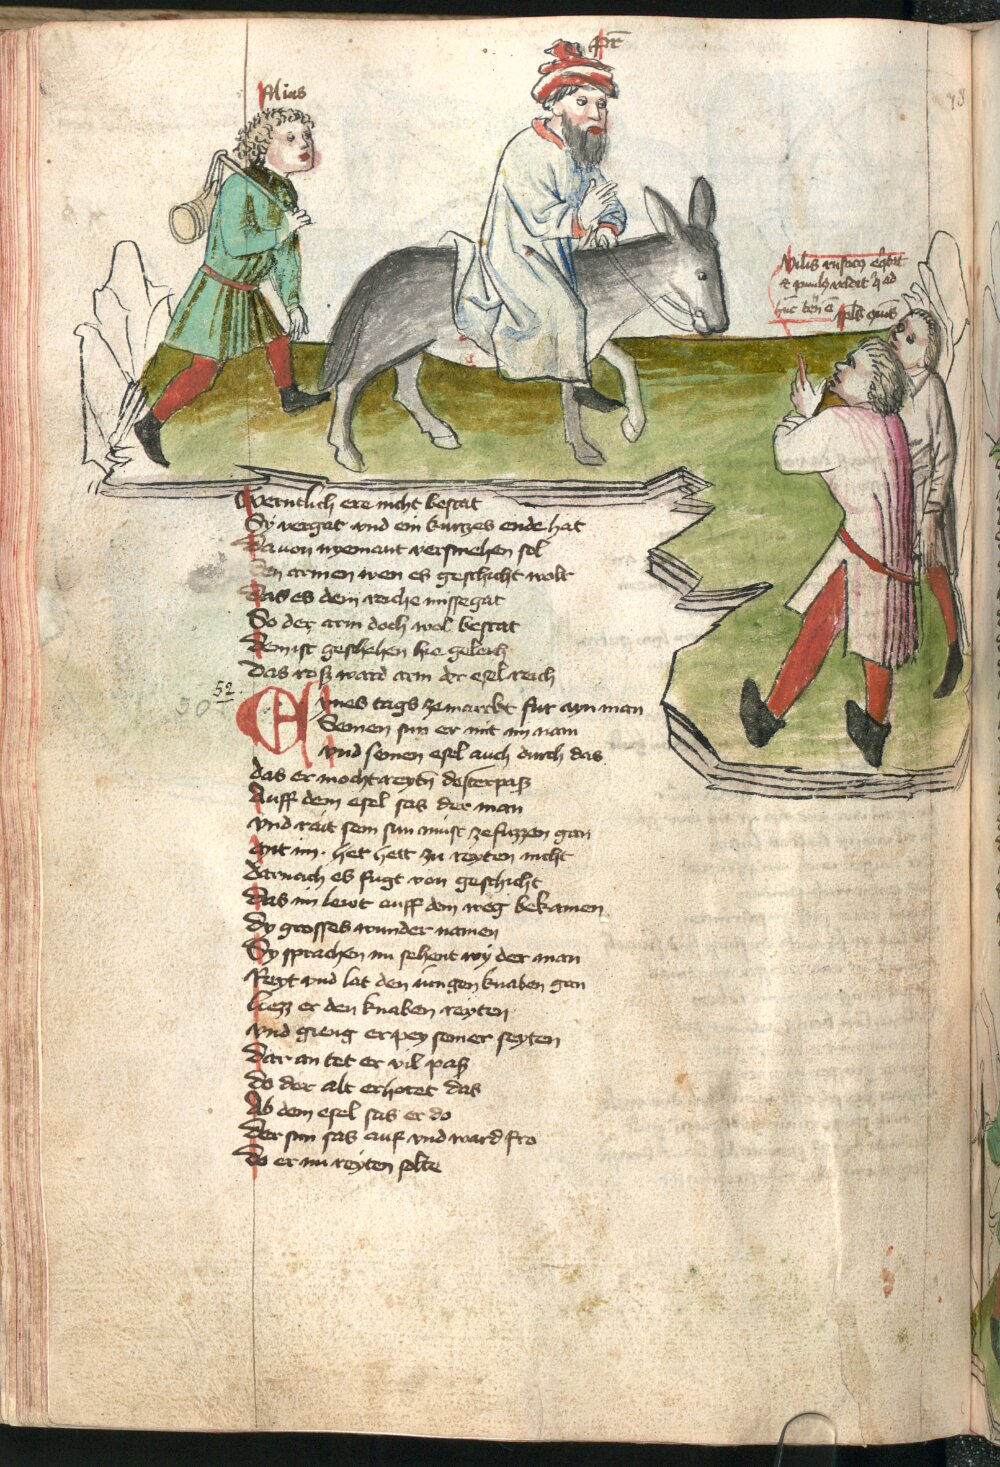 filius
pr̄
48
Vilis rusticus
Werntlich ere nicht bestat
Sy vergat vnd ein kurczes ende hat
Da von nyemant versmehen sol
Den armen wen es geschicht wolt
Das es dem reiche missegat
So der arm doch wol bestat
Dem ist geschehen hie geleich
Das ross ward arm der esel reich
52.
50
Eines tags ze marckt fur ayn man
Seinen sun er mit im nam
Vnd seinen esel auch durch das
das er mocht reytn dester pas
Auff dem esel sas der man
vnd rait sein sun must ze fuzzen gan
mit im. het hett zu reyten nicht
darnach es fugt von geschicht
Das im lewt auff dem weg bekamen
Dy grosses wunder namen
Sy sprachen nu sehent wy der man
Reyt vnd lat den iungen knaben gan
liezz er den knaben reyten
vnd gieng er pey seiner seyten
Dar an tet er vil pas
Do der alt erhoret das
Ab dem esel sas er do
Der sun sas auf vnd ward fro
Do er nu reyten solte